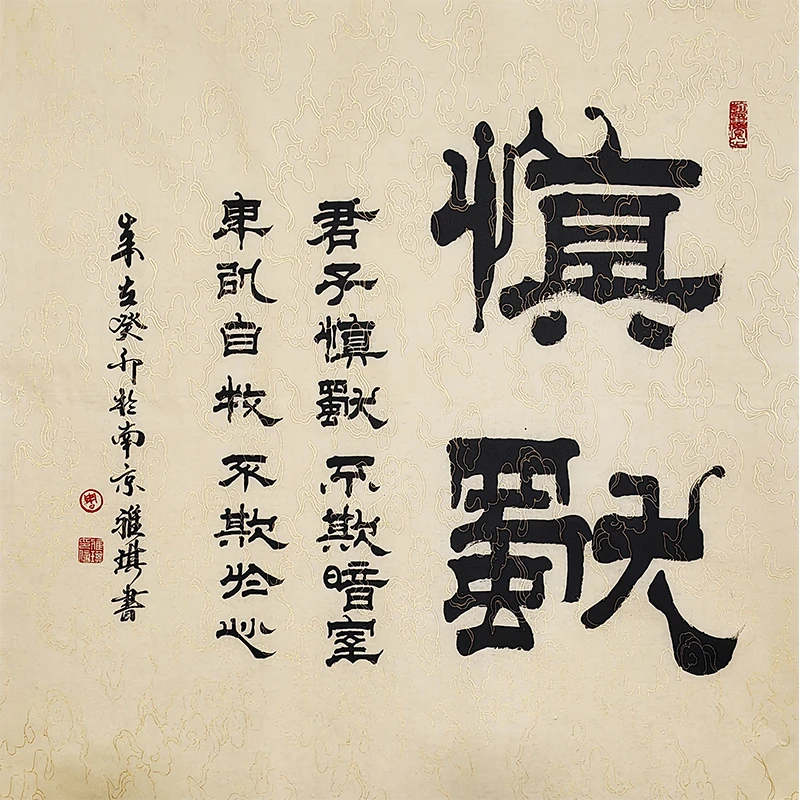 慎獨
君子慎獨不欺暗室
卑以自牧不欺於心
歲在癸卯於南京雅琪書